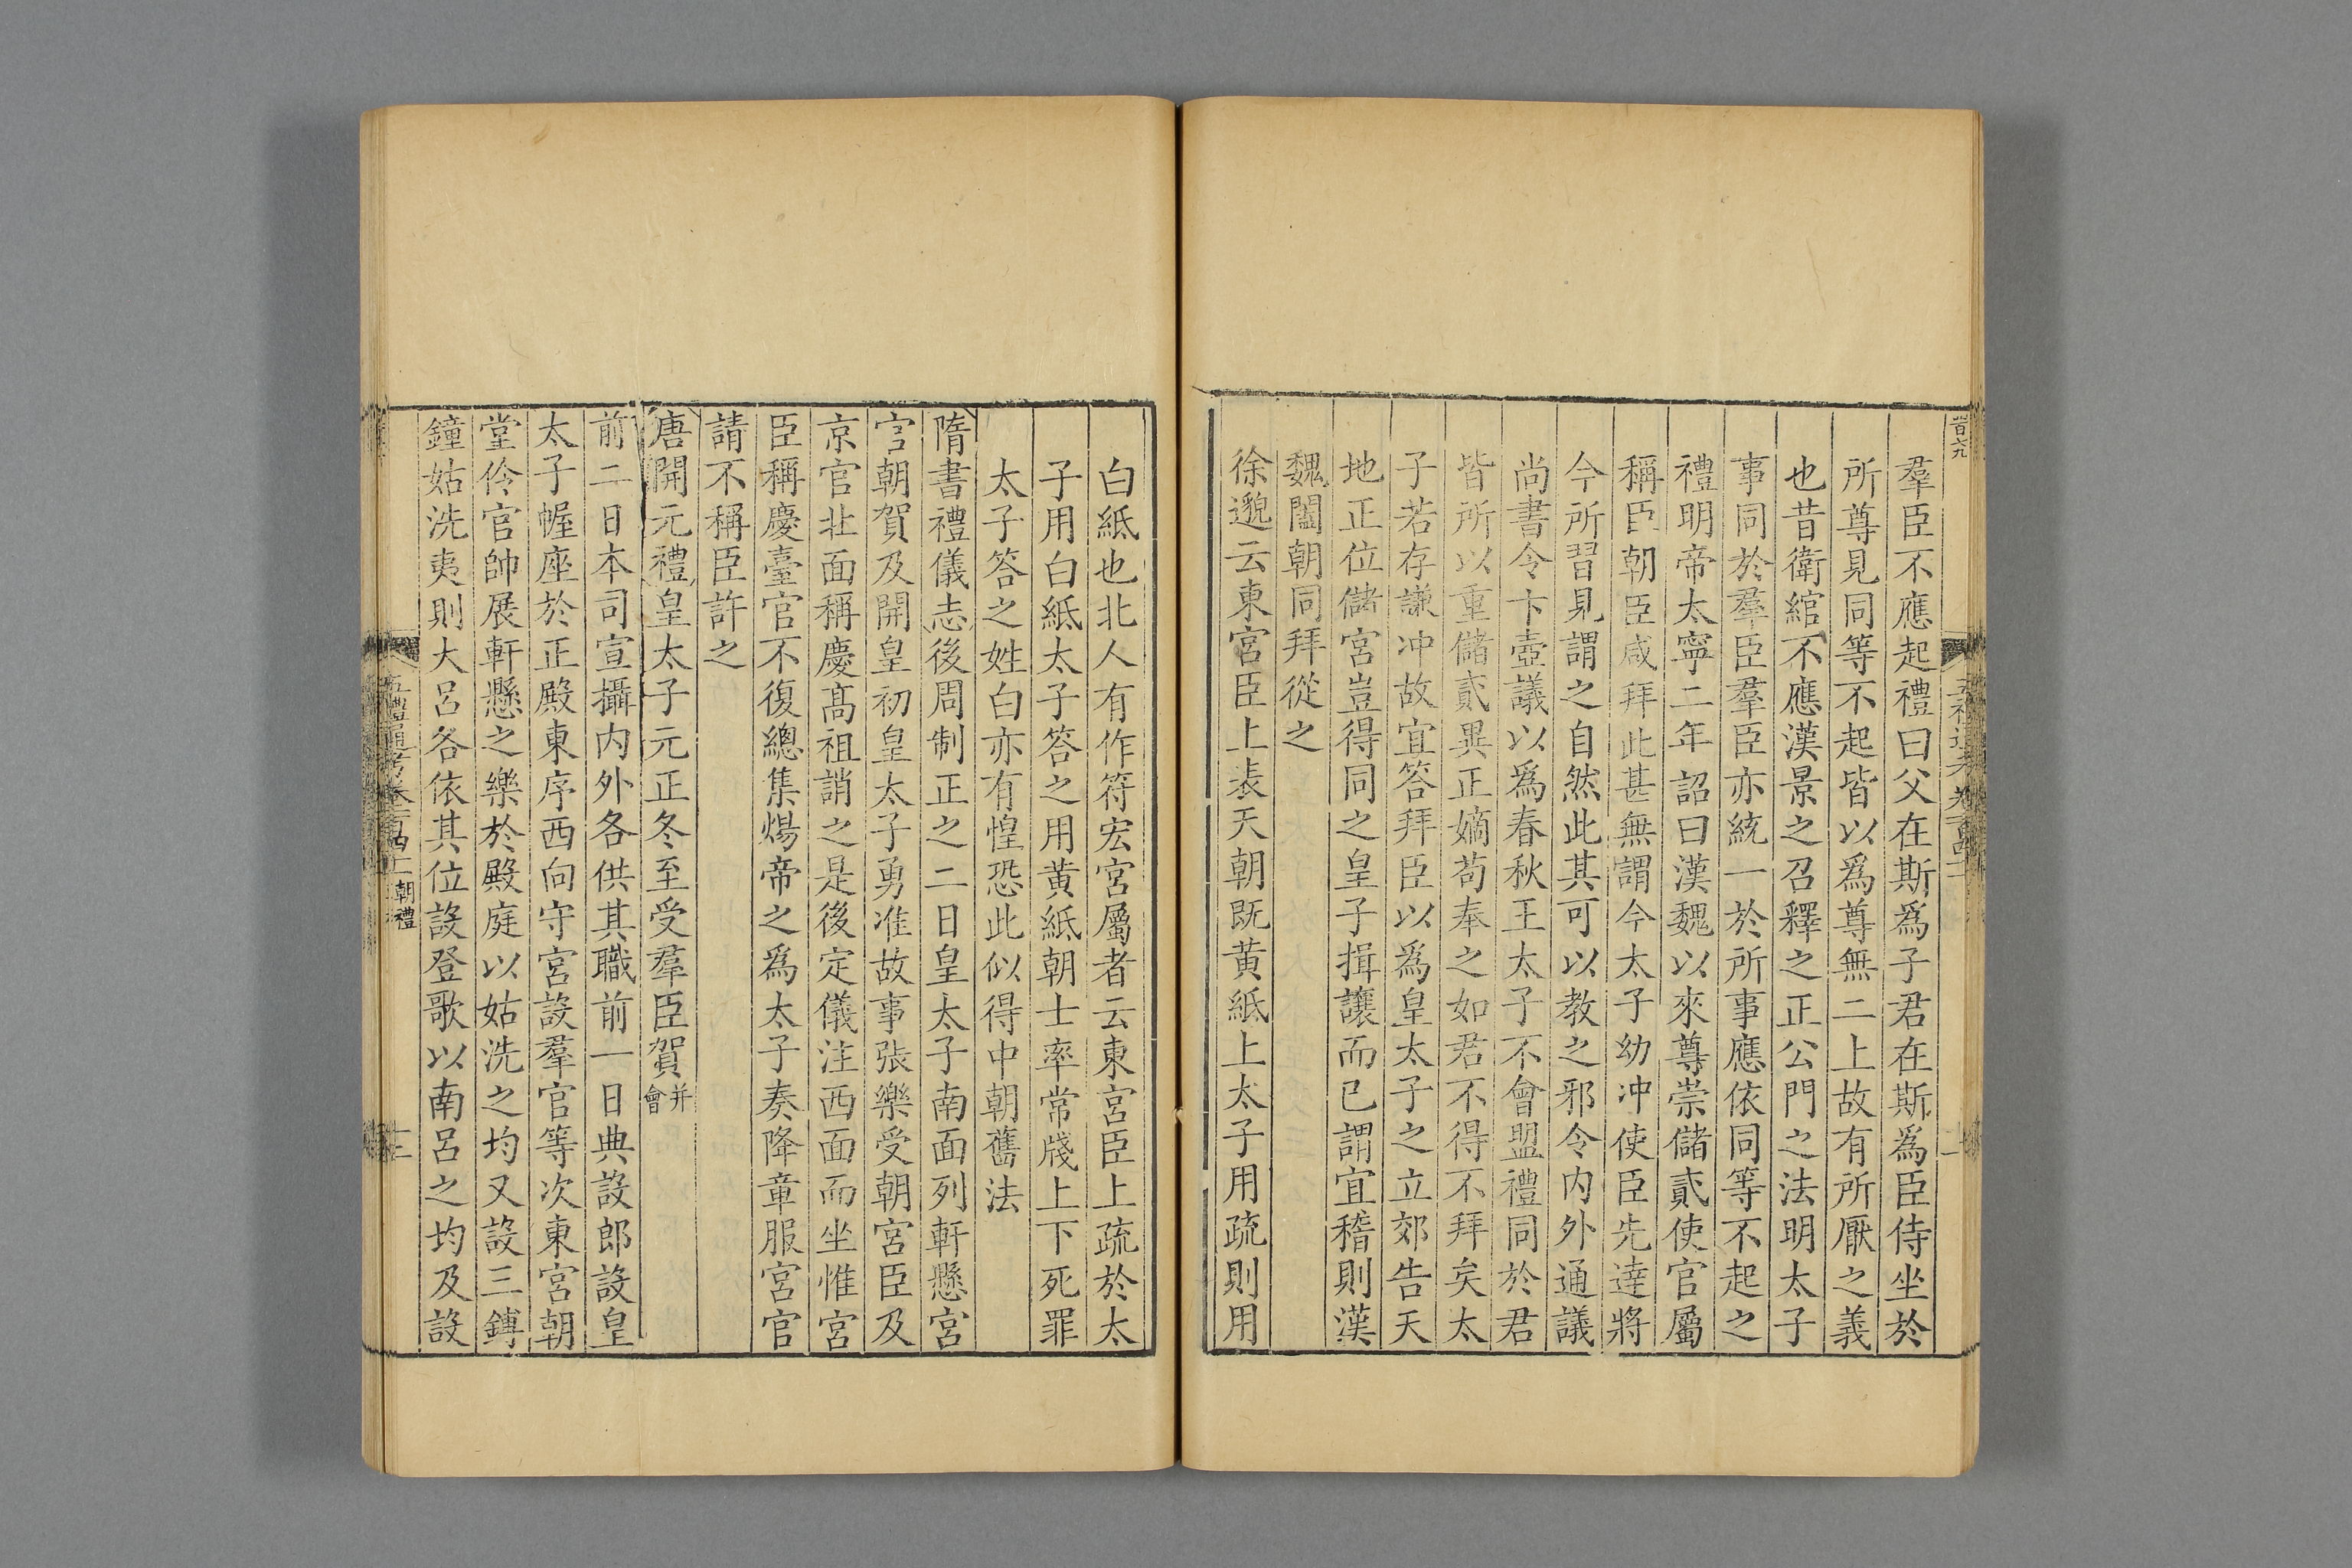 羣臣不應起禮曰父在斯爲子君在斯爲臣侍坐於
所尊見同等不起皆以爲尊無二上故有所厭之義
也昔衛綰不應漢景之召釋之正公門之法明太子
事同於羣臣羣臣亦統一於所事應依同等不起之
禮明帝太寧二年詔曰漢魏以來尊崇儲貳使官屬
稱臣朝臣咸拜此甚無謂今太子幼冲使臣先達將
今所習見謂之自然此其可以教之邪令内外通議
尚書令卞壼議以爲春秋王太子不會盟禮同於君
皆所以重儲貳異正嫡苟奉之如君不得不拜矣太
子若存謙冲故宜答拜臣以爲皇太子之立郊告天
地正位儲宮豈得同之皇子揖讓而已謂宜稽則漢
魏闔朝同拜從之
徐邈云東宮臣上表天朝既黄紙上太子用疏則用
白紙也北人有作符宏宮屬者云東宮臣上疏於太
子用白紙太子答之用黄紙朝士率常牋上下死罪
太子答之姓白亦有惶恐此似得中朝舊法
隋書禮儀志後周制正之二日皇太子南面列軒懸宮
官朝賀及開皇初皇太子勇准故事張樂受朝宮臣及
京官北面稱慶髙祖誚之是後定儀注西面而坐惟宮
臣稱慶臺官不復總集煬帝之爲太子奏降章服宮官
請不稱臣許之
唐開元禮皇太子元正冬至受羣臣賀并會
前二日本司宣攝内外各供其職前一日典設郎設皇
太子幄座於正殿東序西向守宮設羣官等次東宮朝
堂伶官帥展軒懸之樂於殿庭以姑洗之均又設三鎛
鐘姑洗夷則大呂各依其位設登歌以南呂之均及設
五禮通考卷一百四十二 朝禮